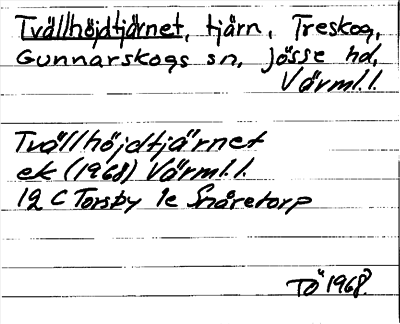 Tvällhöjdtjärnet, tjärn, Treskog,
Gunnarskogs sn, Jösse hd,
Värml. l.
Tvällhöjdtjärnet
ek (1968) Värml. l.
12 C Torsby 1e Snåretorp
Tö 1968.